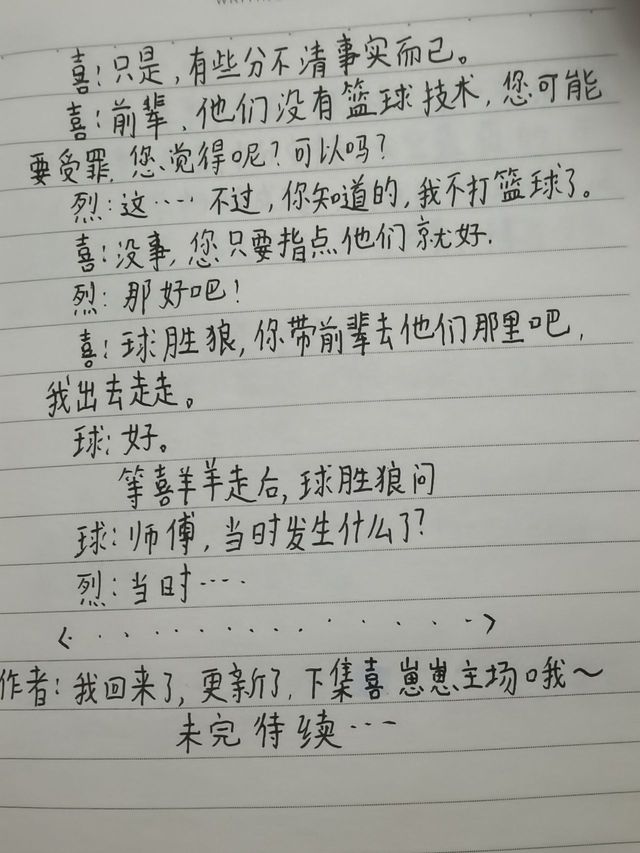 喜：只是，有些分不清事实而已。
喜：前辈，他们没有篮球技术，您可能
要受罪，您觉得呢？可以吗？
烈：这…… 不过，你知道的，我不打篮球了。
喜：没事，您只要指点他们就好.
烈：那好吧！
喜：球胜狼，你带前辈去他们那里吧，
我出去走走。
球：好。
等喜羊羊走后，球胜狼问
球：师傅，当时发生什么了？
烈：当时……
<· · · · · · · · · · · · · ·>
作者：我回来了，更新了，下集喜崽崽主场哦～
未完待续…